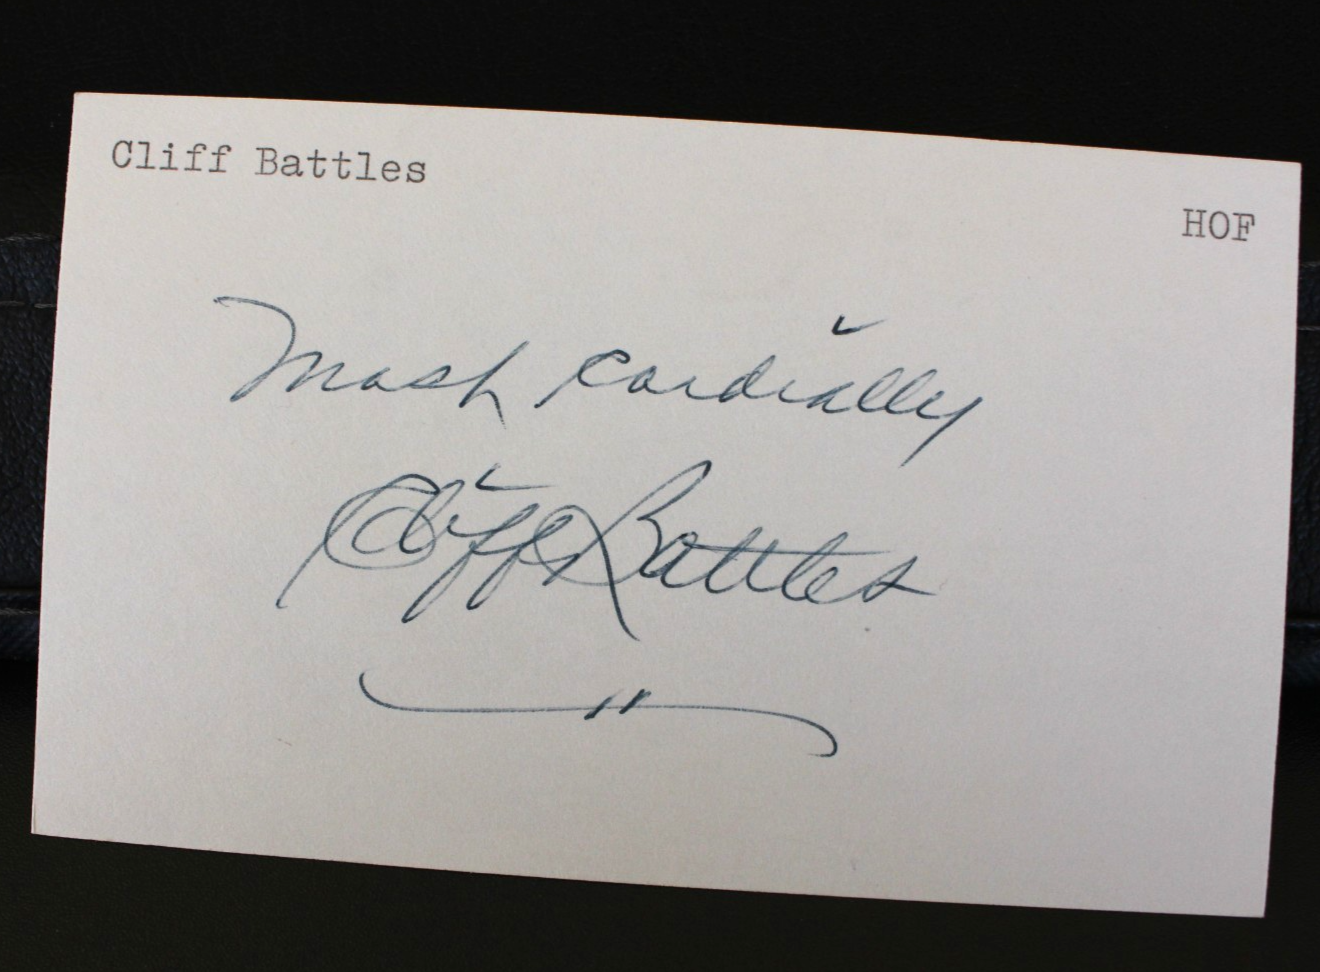 Cliff Battles
HOF
Most cordially
Cliff Battles